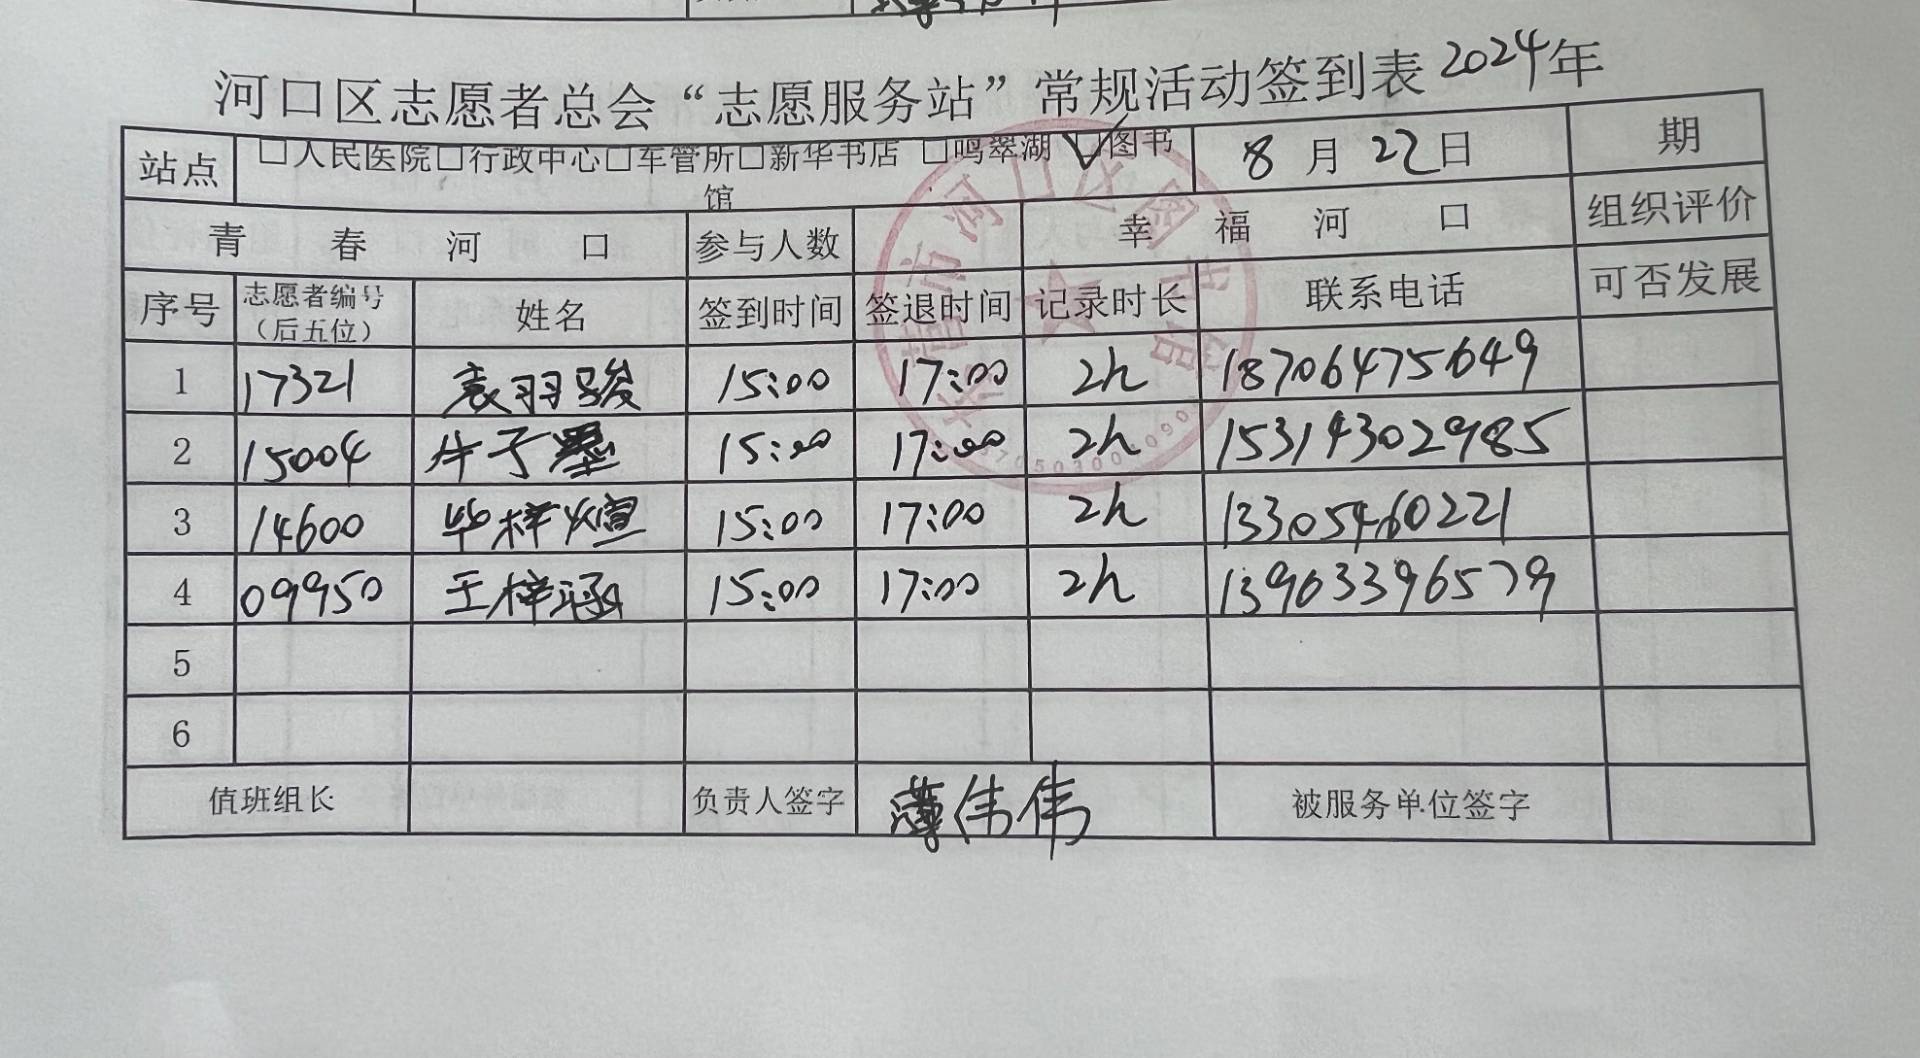 河口区志愿者总会“志愿服务站”常规活动签到表 2024年
站点 □人民医院□行政中心□车管所□新华书店 □鸣翠湖 ☑图书馆 8月22日 期
青春河口 参与人数 幸福河口 组织评价
序号 志愿者编号（后五位） 姓名 签到时间 签退时间 记录时长 联系电话 可否发展
1 17321 袁羽骏 15:00 17:00 2h 18706475649
2 15004 牛子墨 15:00 17:00 2h 15314302985
3 14600 毕梓煊 15:00 17:00 2h 13305460221
4 09950 王梓涵 15:00 17:00 2h 13963396579
5
6
值班组长 负责人签字 薄伟伟 被服务单位签字